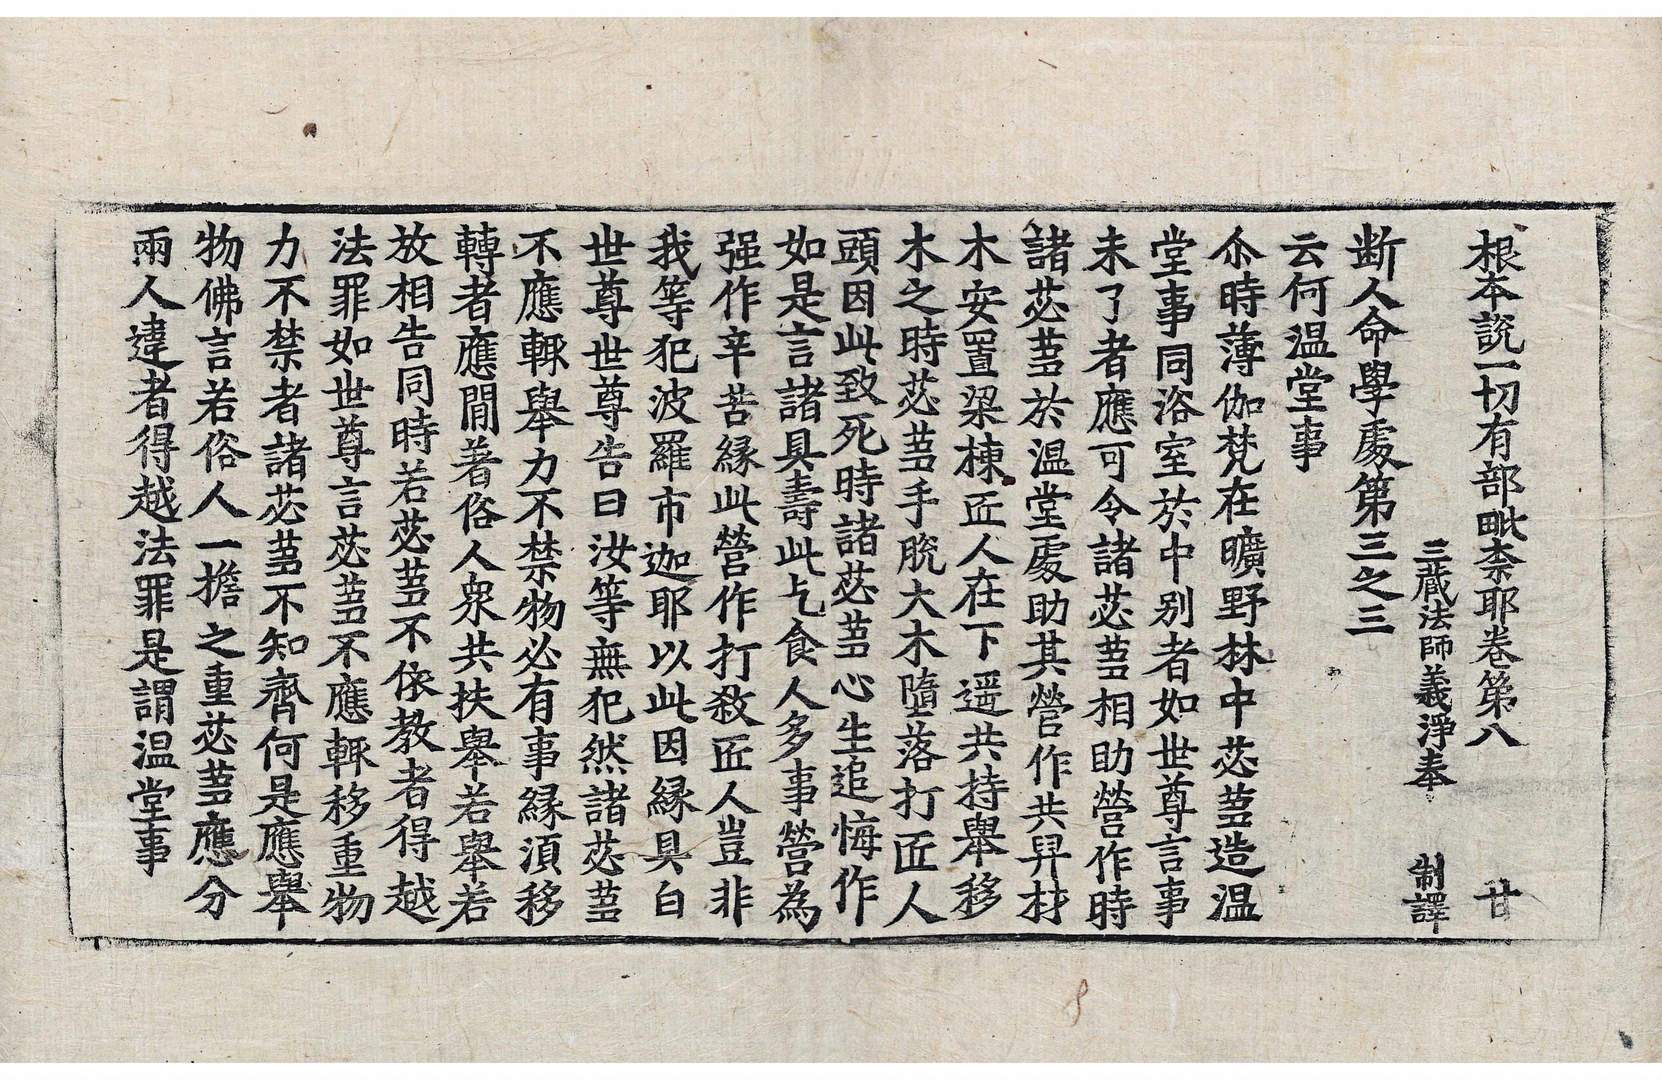 根本説一切有部毗柰耶卷第八 甘
三藏法師義淨奉 制譯
断人命學處第三之三
云何温堂事
尒時薄伽梵在曠野林中苾蒭造温
堂事同浴室於中别者如世尊言事
未了者應可令諸苾蒭相助營作時
諸苾蒭於温堂處助其營作共舁材
木安置梁棟匠人在下遥共持舉移
木之時苾蒭手脫大木墮落打匠人
頭因此致死時諸苾蒭心生追悔作
如是言諸具壽此乞食人多事營為
强作辛苦縁此營作打殺匠人豈非
我等犯波羅市迦耶以此因縁具白
世尊世尊告曰汝等無犯然諸苾蒭
不應輙舉力不禁物必有事縁須移
轉者應閒著俗人衆共扶舉若舉若
放相告同時若苾蒭不依教者得越
法罪如世尊言苾蒭不應輙移重物
力不禁者諸苾蒭不知齊何是應舉
物佛言若俗人一擔之重苾蒭應分
兩人違者得越法罪是謂温堂事